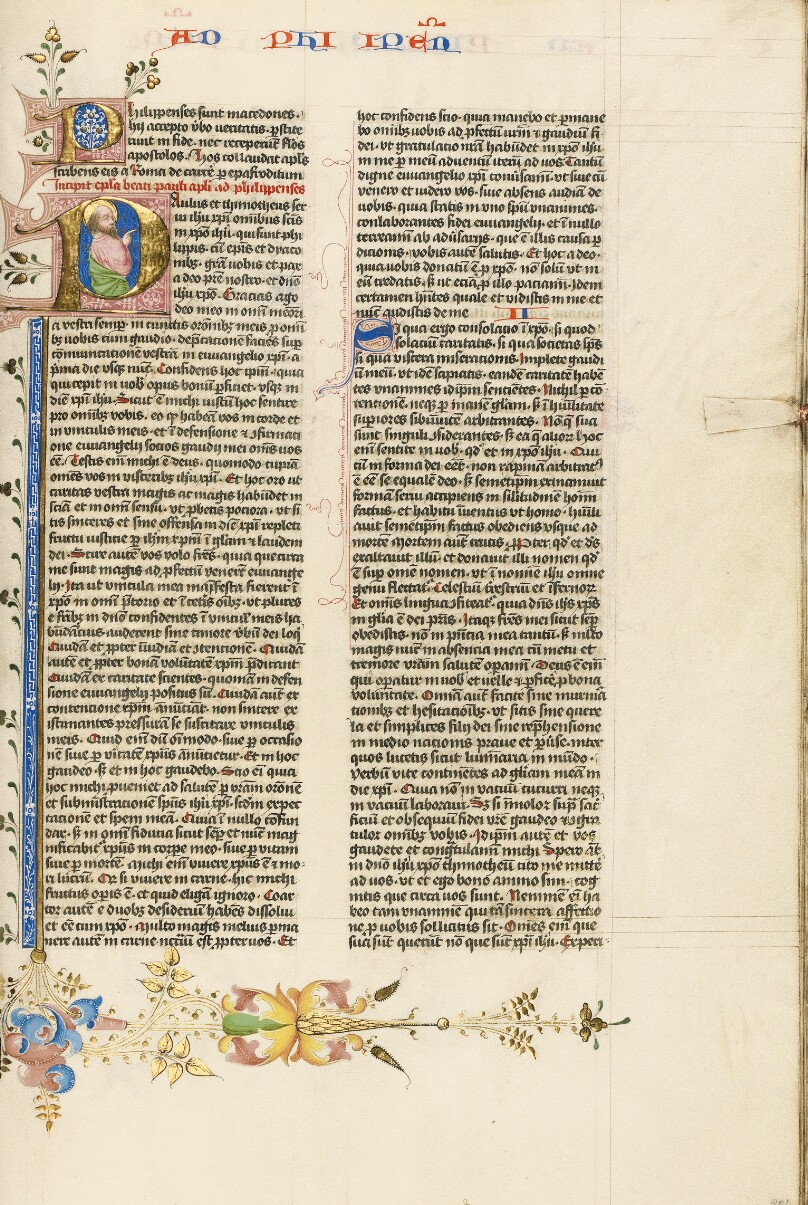 AD PHI IPEN̄
Philippenses sunt macedones.
hij accepto v̄bo ueritatis p̄stite
runt in fide. nec receperūt fl̄os
apostolos. Hos collaudat apl̄s
scribens eis a Roma de carce̅ p epafroditum
Incipit epl̄a beati pauli apl̄i ad philippenses
Paulus et thimotheus ser
ui ih̄u xp̄i omībus sc̄is
in xp̄o ih̄u. qui sunt phi
lippis. cū ep̄is et dyaco
nibꝫ. grā uobis et pax
a deo pr̄e nostro. et dn̄o
ih̄u xp̄o. Gracias ago
deo meo in om̄i mēori
a vestri semꝑ. in cunctis orōnibꝫ meis ꝓ om̄i
bꝫ uobis cum gaudio. dep̄cationē faciēs suꝑ
cōmunicatione vestrā in euuangelio xp̄i. a
p̄ma die vsqꝫ nūc. Confidens hoc ip̄m. quia
qui cepit in uob̄ opus bonū ꝑficiet. vsqꝫ in
diē xp̄i ih̄u. Sicut ē michi iustū hoc sentire
pro omībꝫ vobis. eo qꝫ habeā vos in corde et
in vinculis meis. et ī defensione ⁊ cfirmati
one euuangelij socios gaudij mei om̄s uos
eē. Testis em̄ michi ē deus. quomodo cupiā
om̄es vos in visceribꝫ ih̄u xp̄i. Et hoc oro ut
caritas vestra magis ac magis habūdet in
sciā et in om̄i sensu. vt ꝓbetis pociora. vt si
tis sinceres et sine offensa in diē xp̄i repleti
fructu iusticie ꝑ ih̄m xp̄m ī glam ⁊ laudem
dei. Scire autē vos volo frēs. quia que circa
me sunt magis ad ꝓfectū venerūt euuange
lij. Ita ut vincula mea māifesta fierent ī
xp̄o in om̄i p̄torio et ī cetis oībꝫ. vt plures
e frībꝫ in dn̄o confidentes ī vincul̄ meis ha
būdācius auderent sine timore v̄bū dei loqͥ
Quidā et ꝓpter īuidiā et ꝯtencionē. Quidā
autē et ꝓpter bonā volūtatē xp̄m p̄dicant
Quidā ex caritate scientes. quoniā in defen
sione euuangelij positus sū. Quidā autē ex
contentione xp̄m anūciāt. non sincere ex
istimantes pressurā se suscitare vinculis
meis. Quid em̄ dū om̄i modo. siue ꝑ occasio
nē siue ꝑ v̄itatē xp̄us anūcietur. Et in hoc
gaudeo. sꝫ et in hoc gaudebo. Scio em̄ quia
hoc michi ꝓueniet ad salutē ꝑ vr̄am orōnē
et subministracionē sp̄us ih̄u xp̄i. scdm̄ expec
tacionē et spem meā. Quia ī nullo cōfun
dar. sꝫ in om̄i fiducia sicut seꝑ et nūc mag
nificabit̉ xp̄us in corꝑe meo. siue ꝑ vitam
siue ꝑ mortē. Michi em̄ viuere xp̄us ē ⁊ mo
ri lucrū. Qr̄ si viuere in carne. hic michi
fructus oꝑis ē. et quid eligā ignoro. Coar
tor autē e duobꝫ desideriū habēs dissolui
et eē cum xp̄o. Multo magis melius ꝑma
nere autē in carne nccīū est ꝓpter uos. Et
hoc confidens scio. quia manebo et ꝑmane
bo om̄ibꝫ uobis ad ꝓfectū urm̄ ⁊ gaudiū fi
dei. vt gratulatio urā habūdet in xp̄o ih̄u
in me ꝑ meū aduentū iterū ad uos. Tantū
digne euuangelio xp̄i conuersam̄. vt siue cū
venero et uidero vos. siue absens audiā de
uobis. quia statis in vno sp̄u vnanimes.
conlaborantes fidei euuangelij. et ī nullo
terreamī ab adūsarijs. que ē illis causa ꝑ
dicionis. vobis autē salutis. Et hoc a deo.
quia uobis donatū ē ꝓ xp̄o. nō solū vt in
eū credatis. sꝫ ut eciā ꝓ illo paciam̄. Idem
certamen hn̄tes quale et vidistis in me et
nūc audistis de me II
Si qua ergo consolatio ī xp̄o. si quod
solaciū caritatis. si qua societas sp̄s
si qua viscera miseracionis. Implete gaudi
ū meū. vt idē sapiatis. eandē caritatē habē
tes vnanimes idip̄m sentiētes. Nichil ꝑ cō
tentionē. neqꝫ ꝑ inanē glam̄. sꝫ ī hūilitate
suꝑiores sibiinuicē arbitrantes. Nō q̄ sua
sunt singuli ꝯsiderantes. sꝫ ea q̄ alioꝝ. hoc
em̄ sentite in uob̄. qd̄ et in xp̄o ih̄u. Qui
cū in forma dei eēt. non rapinā arbitrat̉
ē eē se equalē deo. sꝫ semetip̄m exinaniuit
formā serui accipiens in silitudinē hoīm
factus. et habitu īuentus vt homo. hūili
auit semetip̄m factus obediens vsque ad
mortē. mortem autē crucis. ꝓpter qd̄ et ds̄
exaltauit illū. et donauit illi nomen qd̄
ē suꝑ om̄e nomen. vt ī nomīe ih̄u omne
genu flectat̉. Celestiū t̉restriū et īfernoꝝ.
Et omīs lingua ꝯfiteat̉. quia dn̄s ih̄s xp̄s
in gl̄ia ē dei p̄ris. Itaqꝫ frēs mei sicut seꝑ
obedistis. nō in p̄ncia mea tantū. sꝫ m̄lto
magis nūc in absencia mea cū metu et
tremore vrām salutē oꝑam̄. Deus ē em̄
qui oꝑatur in uob̄ et uelle ⁊ ꝑfice̅ ꝓ bona
voluntate. Om̄ia aut̄ facite sine murmu
rationibꝫ et hesitacōibꝫ. vt sitis sine quere
la et simplices filij dei sine rep̄hensione
in medio nacionis praue et ꝑūse. inter
quos lucetis sicut luminaria in mūdo.
verbū vite continētes ad gl̄iam meā in
die xp̄i. Quia nō in vacuū cucurri neqꝫ
in vacuū laboraui. Sꝫ si īmolor supͣ sac̉
ficiū et obsequiū fidei vr̄e gaudeo ⁊ ꝯgra
tulor omībꝫ vobis. Idip̄m autē et vos
gaudete et congͣtulamī michi. Spero aūt
in dn̄o ih̄u xp̄o thimotheū cito me mitte̅
ad uos. vt et ego bono animo sim. cog
nitis que circa uos sunt. Neminē em̄ ha
beo tam vnanimē qui tā sincera affectio
ne ꝓ uobis sollicitus sit. Om̄es em̄ que
sua sūt querūt nō que sūt xp̄i ih̄u. Experi